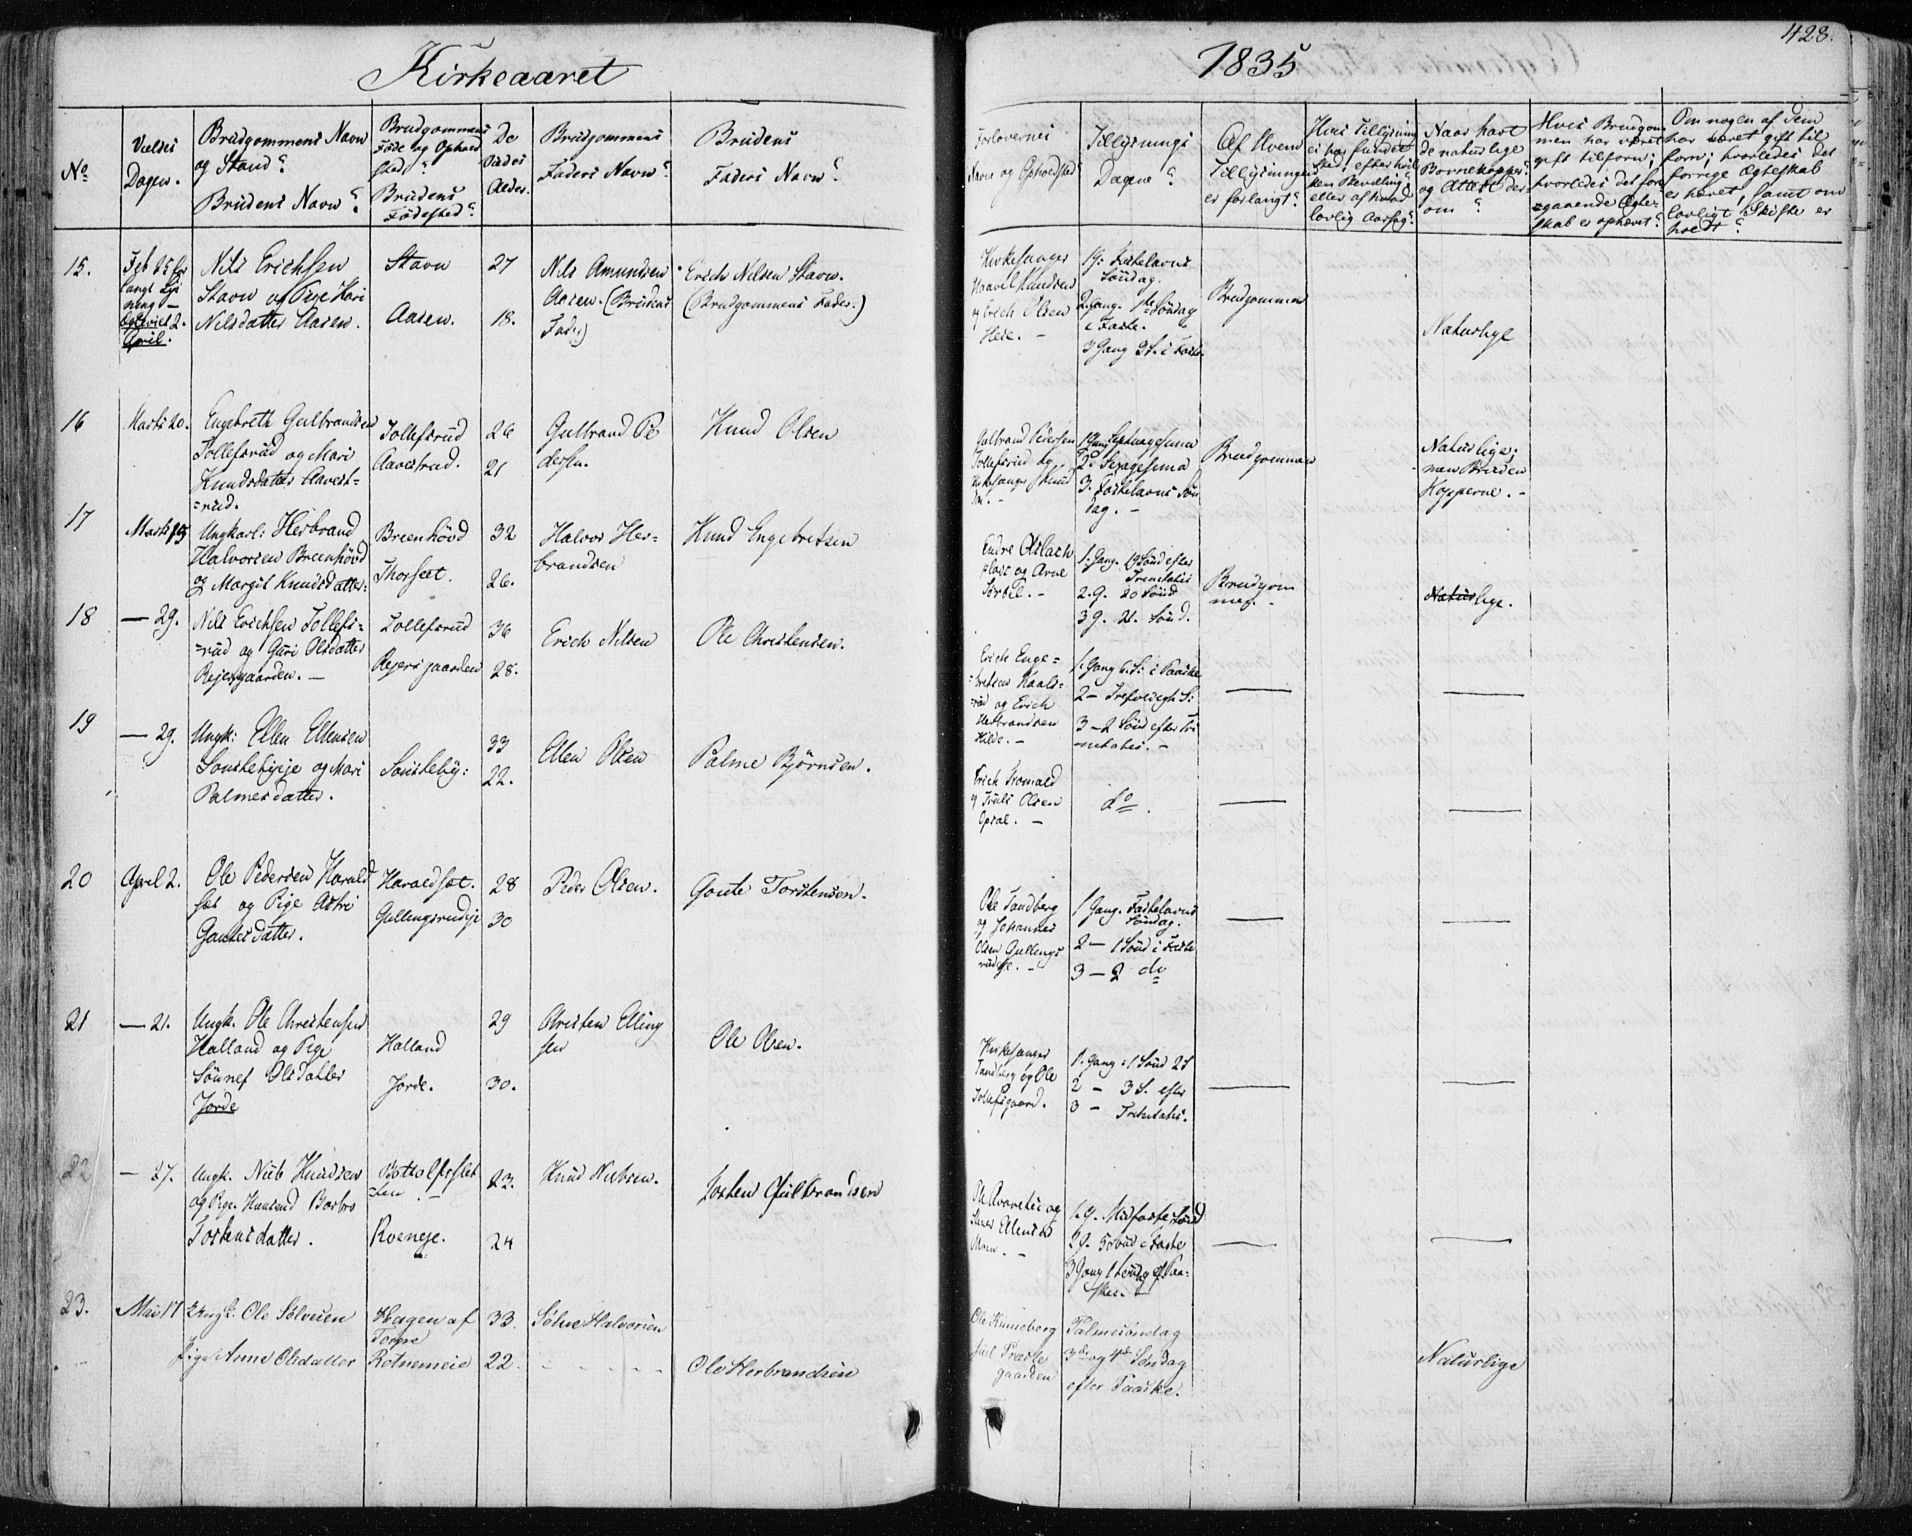 Kirkeaaret
1835
428.
No
Vielses
Dagen.
Brudgommens Navn
og Stand?
Brudens Navn?
Brudgommens
Føde og Ophold
sted?
Brudens
Fødested?
De
Vieldes
Alder.
Brudgommens
Faders Navn?
Brudens
Faders Navn?
Forlovernes
Navn og Opholdsted
Tillysnings
Dagene?
Af Hvem
Tillysningen
er forlangt?
Hvis Tillysning
ei har fundet
Sted, efter hvil
ken Bevilling
eller af hvad
lovlig Aarsag?
Naar havt
de naturlige
Børnekopper
og Attest der
om?
Hvis Brudgom
men har været
gift tilforn;
hvorledes det fore
=gaaende Ægte-
skab er ophævet?
Om nogen af dem
har været gift til
forn; hvorledes det
forrige Ægteskab
er hævet, samt om
lovligt Skifte er
holdt?
15.
2.
April.
Nils Erichsen
Stavn og Pige Kari
Nilsdatter Aasen.
Stavn
Aasen.
27
18.
Nils Amundsen
Aasen. (Brudens
Fader)
Erich Nilsen Stavn.
(Brudgommens Fader.)
Kirkesanger
Knudsen
og Erich Olsen
1 g: Fastelavns
Söndag.
2 gang. 1te Söndag
i Faste.
3 Gang 2 S. i Faste.
Brudgommen
Naturlige
16
Marts 20.
Engebreth Gulbrandsen
Tollefsrud og Mari
Knudsdatter Aavest-
=rud.
Tollefsrud
Aavestrud.
26
21
Gulbrand Pe
dersen.
Knud Olsen
Gulbrand Pedersen
Tollefsrud og
Kirkesanger
1 Gang Septuagesima
2. Sexagesima
3. Fastelavns Sön
dag. -
Brudgommen
Naturlige;
men Bruden
Kopperne. -
17
Marts 15
Ungkarl: Herbrand
Halvorsen Breenhövd
og Margit Knudsdatter:
Breenhövd
32
26.
Halvor Her-
brandsen
Knud Engebretsen
Endre Aslach
og Arne
1. Gang. 19 Sönd efter
Trinitatis
2. g. 20 Sönd
3 g. 21. Sönd.
Brudgom
men. -
Naturlige.
18
— 29.
Nils Erichsen Tollefs-
=rud og Guri Olsdatter
Rejersgaarden. —
Tollefsrud
Rejersgaarden
36
28.
Erich Nilsen
Ole Christensen.
Erich Enge=
=bretsen
og Erich
Herbrandsen
Hilde. -
1. Gang 6. S: i Faaske
2 —
3 — 2 Sönd efter Tri
nitatis. -
19
— 29.
Ungk: Ellen Ellensen
og Mari
Palmesdatter.
33
22.
Ellen Olsen
Palme Björnsen.
Erich
og Truls Olsen
Opsal. -
do.
20
April 2.
Ole Pedersen Harald
set og Pige Astri
Goutesdatter.
Haraldset.
Gullingsrudeje
28
30
Peder Olsen.
Goute Torstensen.
Ole Sandberg
og Johannes
Olsen Gullings
rudeje. -
1 Gang. Fastelavns
Söndag.
2 — 1 Sönd i Faste
3 — 2 do
21
— 21.
Ungk. Ole Christensen
Halland og Pige
Sönnef Olsdatter
Jorde
Halland
Jorde.
29
30.
Christen Elling
sen
Ole Olsen.
Kirkesanger
Sandberg og Ole
Tollefsgaard.
1. Gang
2 — 3 S. efter
3 — Trinitatis.
22
— 27.
Ungk. Niels Knudsen
og Pige Barbro
Tostensdatter.
Roeneje.
23.
24
Knud Nielsen.
Tosten Gulbrandsen
1. g. Midfaste Sönd
2 g. 5 Sönd i Faste
3 Gang 1 Söndag ef. Paa-
ske. -
23.
Mai 17
Ungk. Ole Sølvesen
Pige Anne Olsdatter
Hagen af
Torpe
Rotnemeie
33.
22.
Sølve Halvorsen
Ole Herbrandsen
Ole Kinneberg
Præste
gaarden
Palmesöndag
3de og 4de Söndag
efter Paaske.
Naturlige